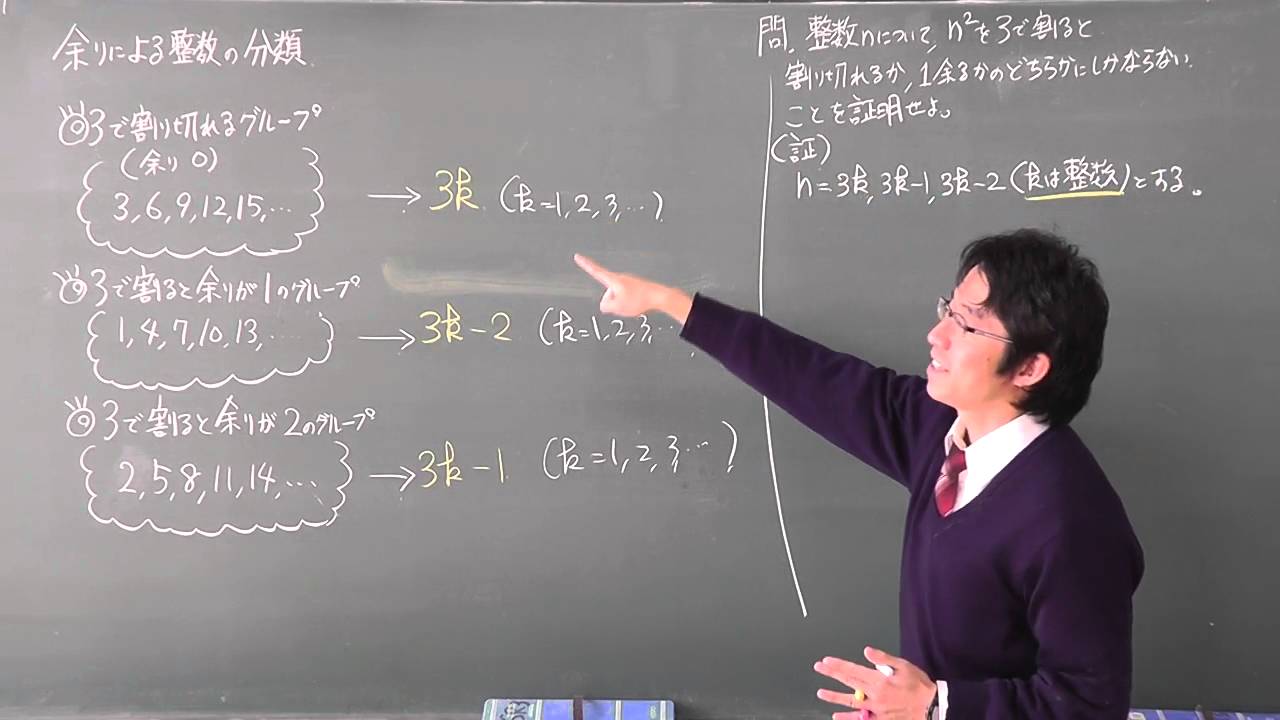 余りによる整数の分類
◎3で割り切れるグループ
(余り 0)
3,6,9,12,15,…
→ 3k (k=1,2,3,…)
◎3で割ると余りが1のグループ
1,4,7,10,13,…
→ 3k-2 (k=1,2,3,…
◎3で割ると余りが2のグループ
2,5,8,11,14,…
→ 3k-1 (k=1,2,3,…)
問. 整数nについて, n²を3で割ると
割り切れるか, 1余るかのどちらかにしかならない
ことを証明せよ。
(証)
n=3k, 3k-1, 3k-2 (kは整数)とする。